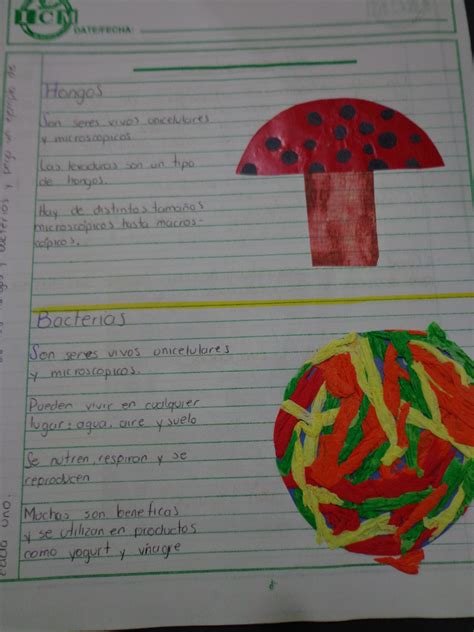 DATE/FECHA:
Hongos
Son seres vivos unicelulares
y microscopicos
Las levaduras son un tipo
de hongos.
Hay de distintos tamaños
microscopicos hasta macros-
cópicos.
Bacterias
Son seres vivos unicelulares
y microscopicos.
Pueden vivir en cualquier
lugar: agua, aire y suelo
Se nutren, respiran y se
reproducen
Muchas son beneficas
y se utilizan en productos
como yogurt y vinagre
y bacterias y pega un ejemplo de
cada uno.